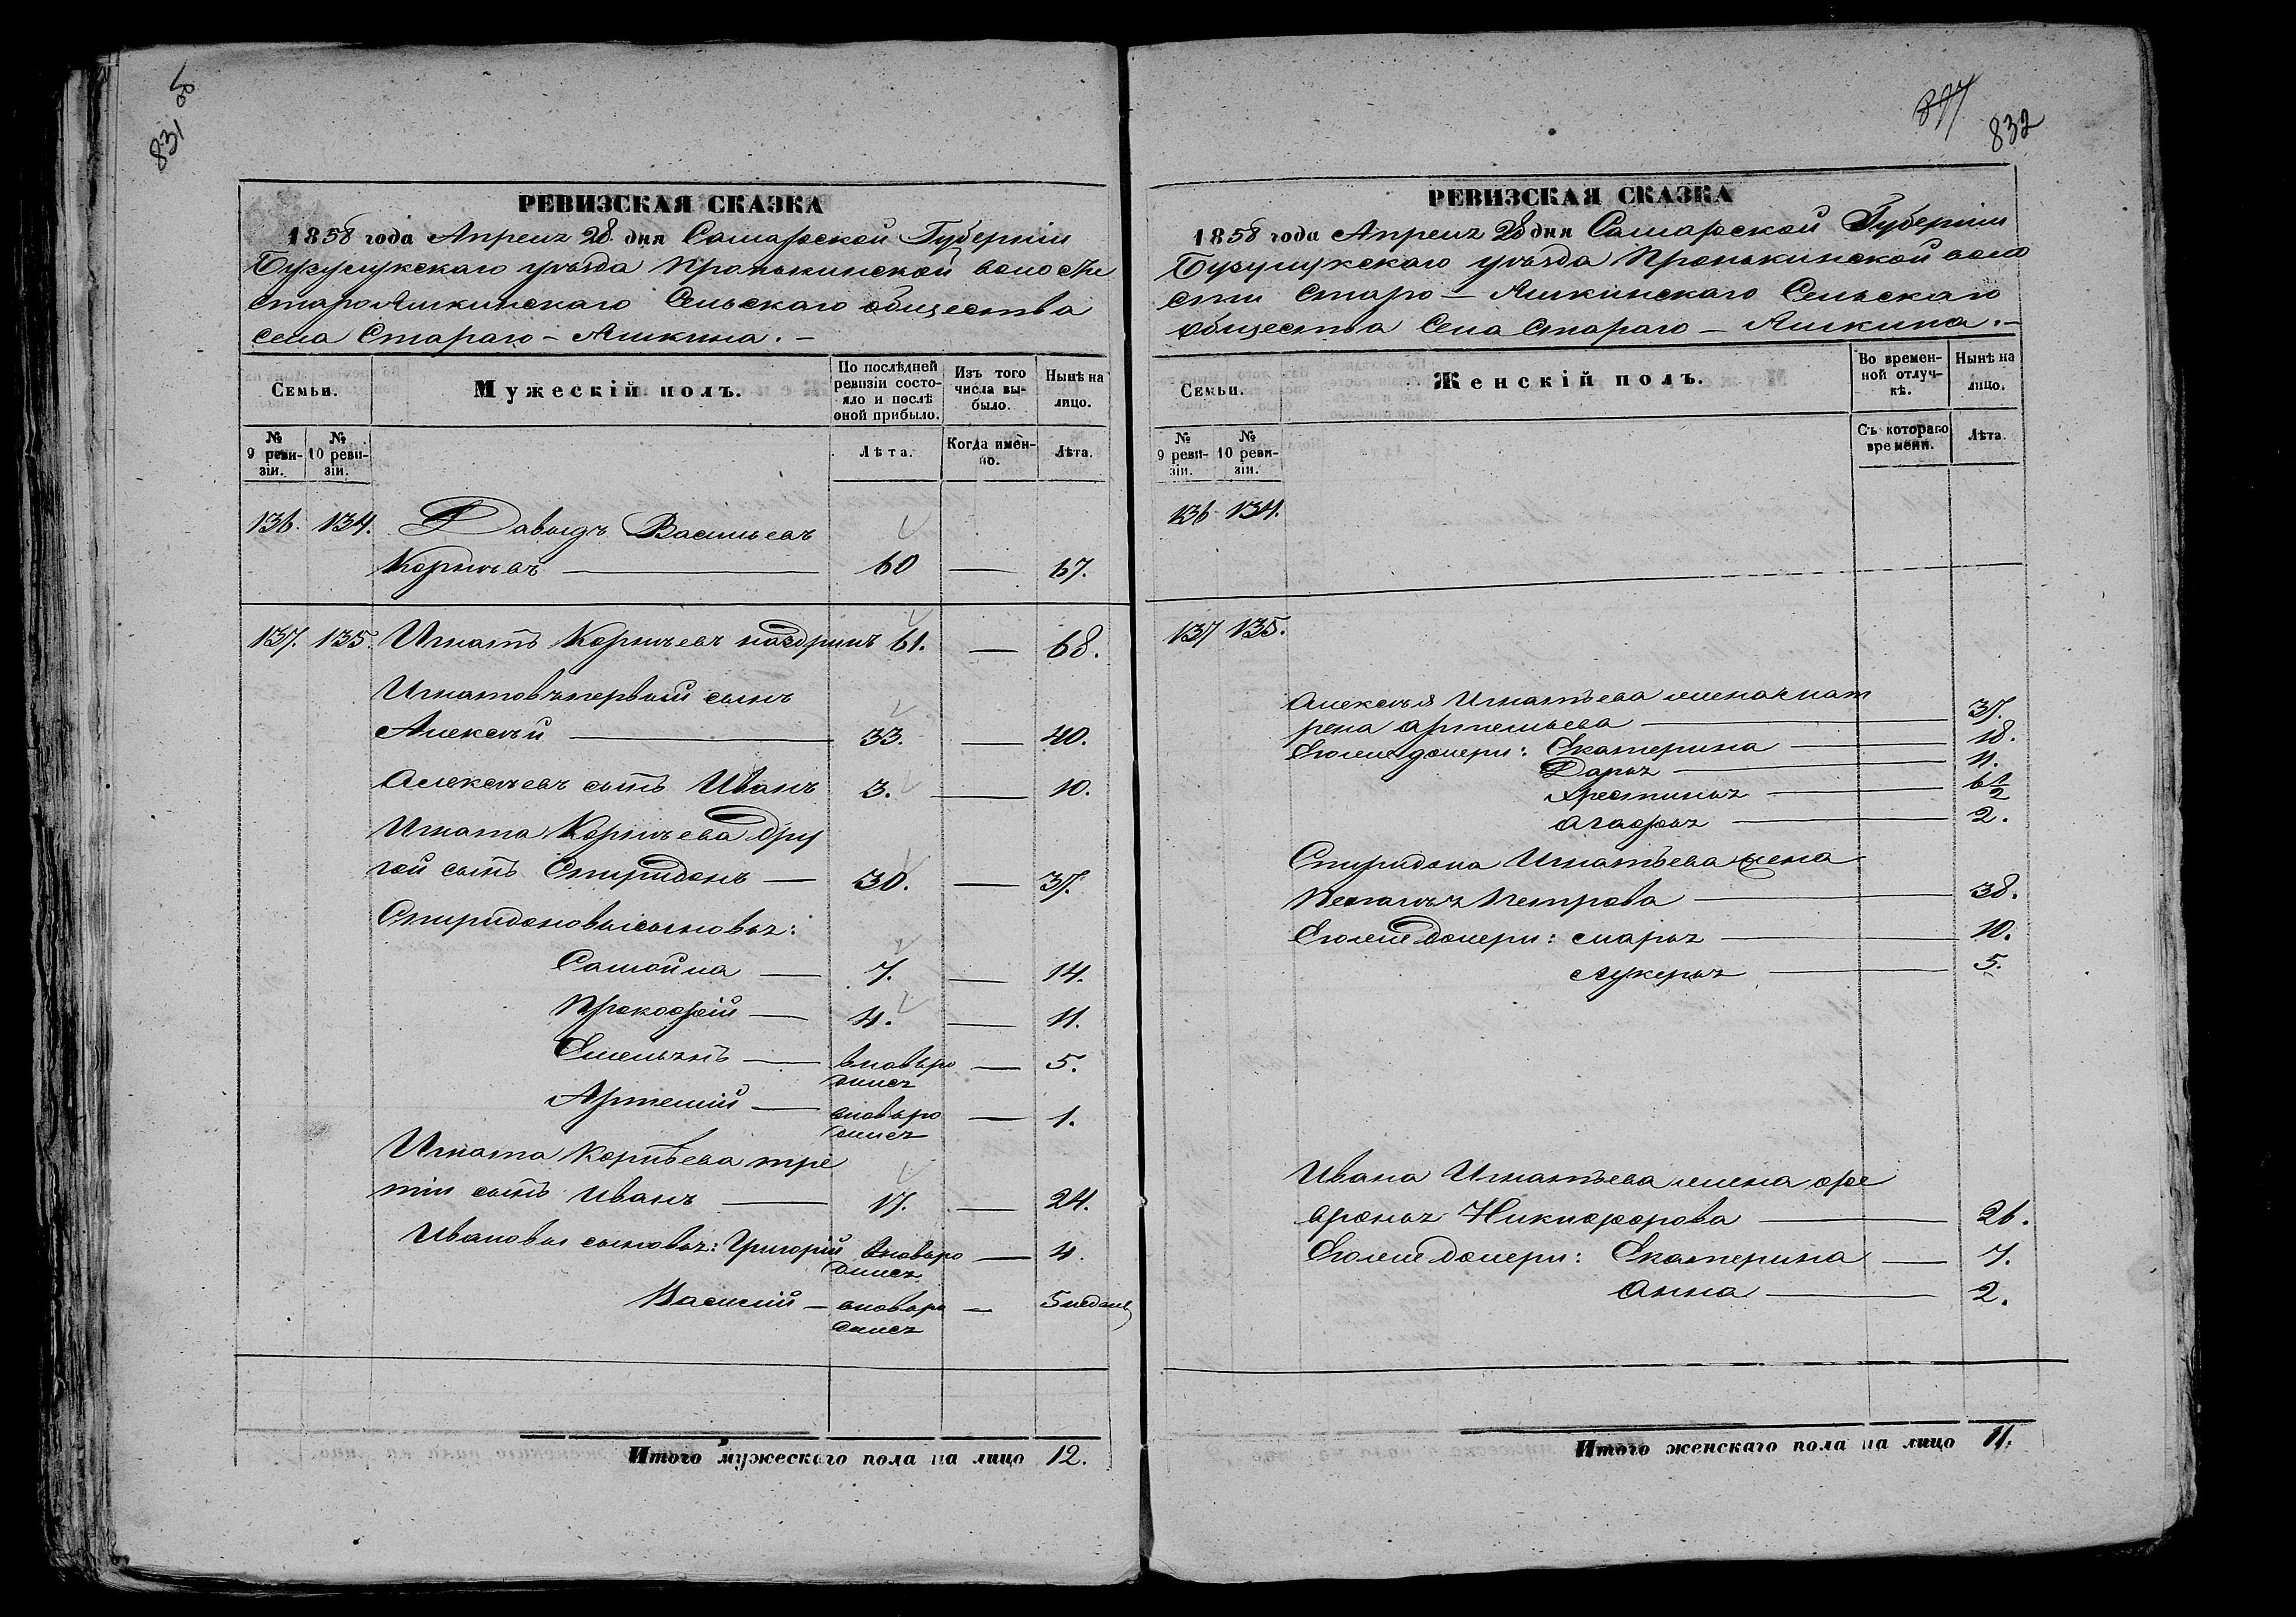 831 об
РЕВИЗСКАЯ СКАЗКА
1858 года Апреля 28 дня Самарской Губерніи
Бузулукскаго уѣзда Пронькинской волости
СтароЯшкинскаго Сельскаго общества
села Стараго - Яшкина. -
Семьи.
Мужескій полъ.
По послѣдней ревизіи состояло и послѣ оной прибыло.
Изъ того числа выбыло.
Нынѣ на лицо.
№ 9 ревизіи.
№ 10 ревизіи.
Лѣта.
Когда именно.
Лѣта.
136. 134. Давыдъ Васильевъ
Корнѣевъ — 60 — 67.
137. 135. Игнатъ Корнѣевъ 61. — 68.
Игнатовъ первый сынъ
Алексѣй — 33. — 40.
Алексѣевъ сынъ Иванъ 3. — 10.
Игната Корнѣева дру
гой сынъ Спиридонъ — 30. — 37.
Спиридоновы сыновья:
Самойла — 7. — 14.
Прокофій — 4. — 11.
Емельянъ — вновьро — 5.
дился
Артемій — вновьро — 1.
дился
Игната Корнѣева тре
тій сынъ Иванъ — 17. — 24.
Ивановы сыновья: Григорій вновьро — 4.
дился
Василій — вновьро — 5 недель
дился
Итого мужескаго пола на лицо 12.
832
РЕВИЗСКАЯ СКАЗКА
1858 года Апреля 28 дня Самарской Губерніи
Бузулукскаго уѣзда Пронькинской воло
сти Старо - Яшкинскаго Сельскаго
общества Села Стараго - Яшкина. -
Семьи.
Женскій полъ.
Во временной отлучкѣ.
Нынѣ на лицо.
№ 9 ревизіи.
№ 10 ревизіи.
Съ котораго времени.
Лѣта.
136 134.
137 135.
Алексѣя Игнатьева жена Мат
рена Артемьева — 37.
Еголиш дочери: Екатерина — 18.
Дарья — 11.
Хрестинья — 6 1/2
Агафья — 2.
Спиридона Игнатьева жена
Пелагѣя Петрова — 38.
Еголиш дочери: Марья — 10.
Лукерья — 5.
Ивана Игнатьева жена Фе
вронья Никифорова — 26.
Еголиш дочери: Екатерина — 7.
Анна — 2.
Итого женскаго пола на лицо 11.